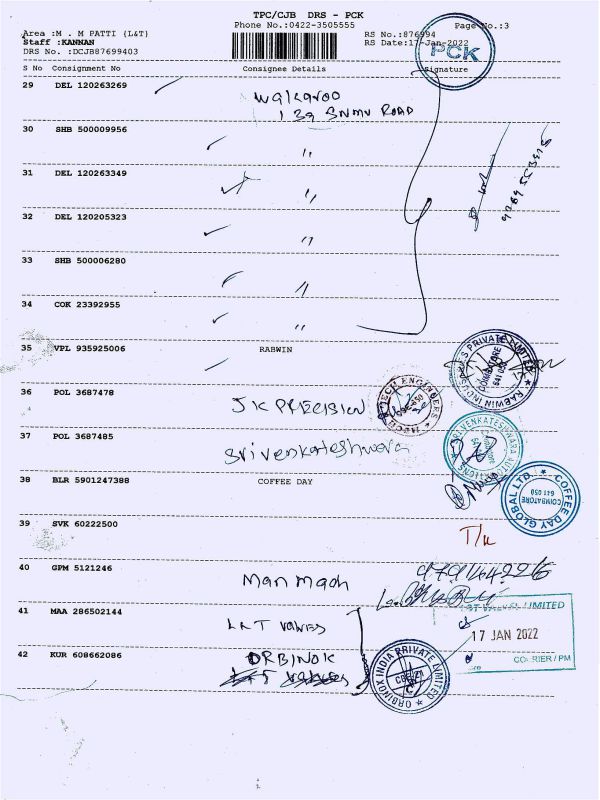 TPC/CJB DRS - PCK
Phone No.:0422-3505555
Area :M . M PATTI (L&T)
Page No.:3
Staff :KANNAN
RS No.:876994
DRS No :DCJB87699403
RS Date:17-Jan-2022
PCK
S No Consignment No Consignee Details Signature
29 DEL 120263269 Walkaroo
139 SNMV ROAD
30 SHB 500009956 "
31 DEL 120263349 "
32 DEL 120205323 "
33 SHB 500006280 "
34 COK 23392955 "
35 VPL 935925006 RABWIN
RABWIN INDUSTRIES PRIVATE LIMITED
COIMBATORE
641 050
36 POL 3687478 JK PRECISION
37 POL 3687485 Sri Venkateshwara
38 BLR 5901247388 COFFEE DAY
COFFEE DAY GLOBAL LTD.
COIMBATORE
641 050
39 SVK 60222500
40 GPM 5121246
41 MAA 286502144 L&T Valves
LIMITED
17 JAN 2022
COURIER/PM
42 KUR 608662086 ORBINOX
ORBINOX INDIA PRIVATE LIMITED